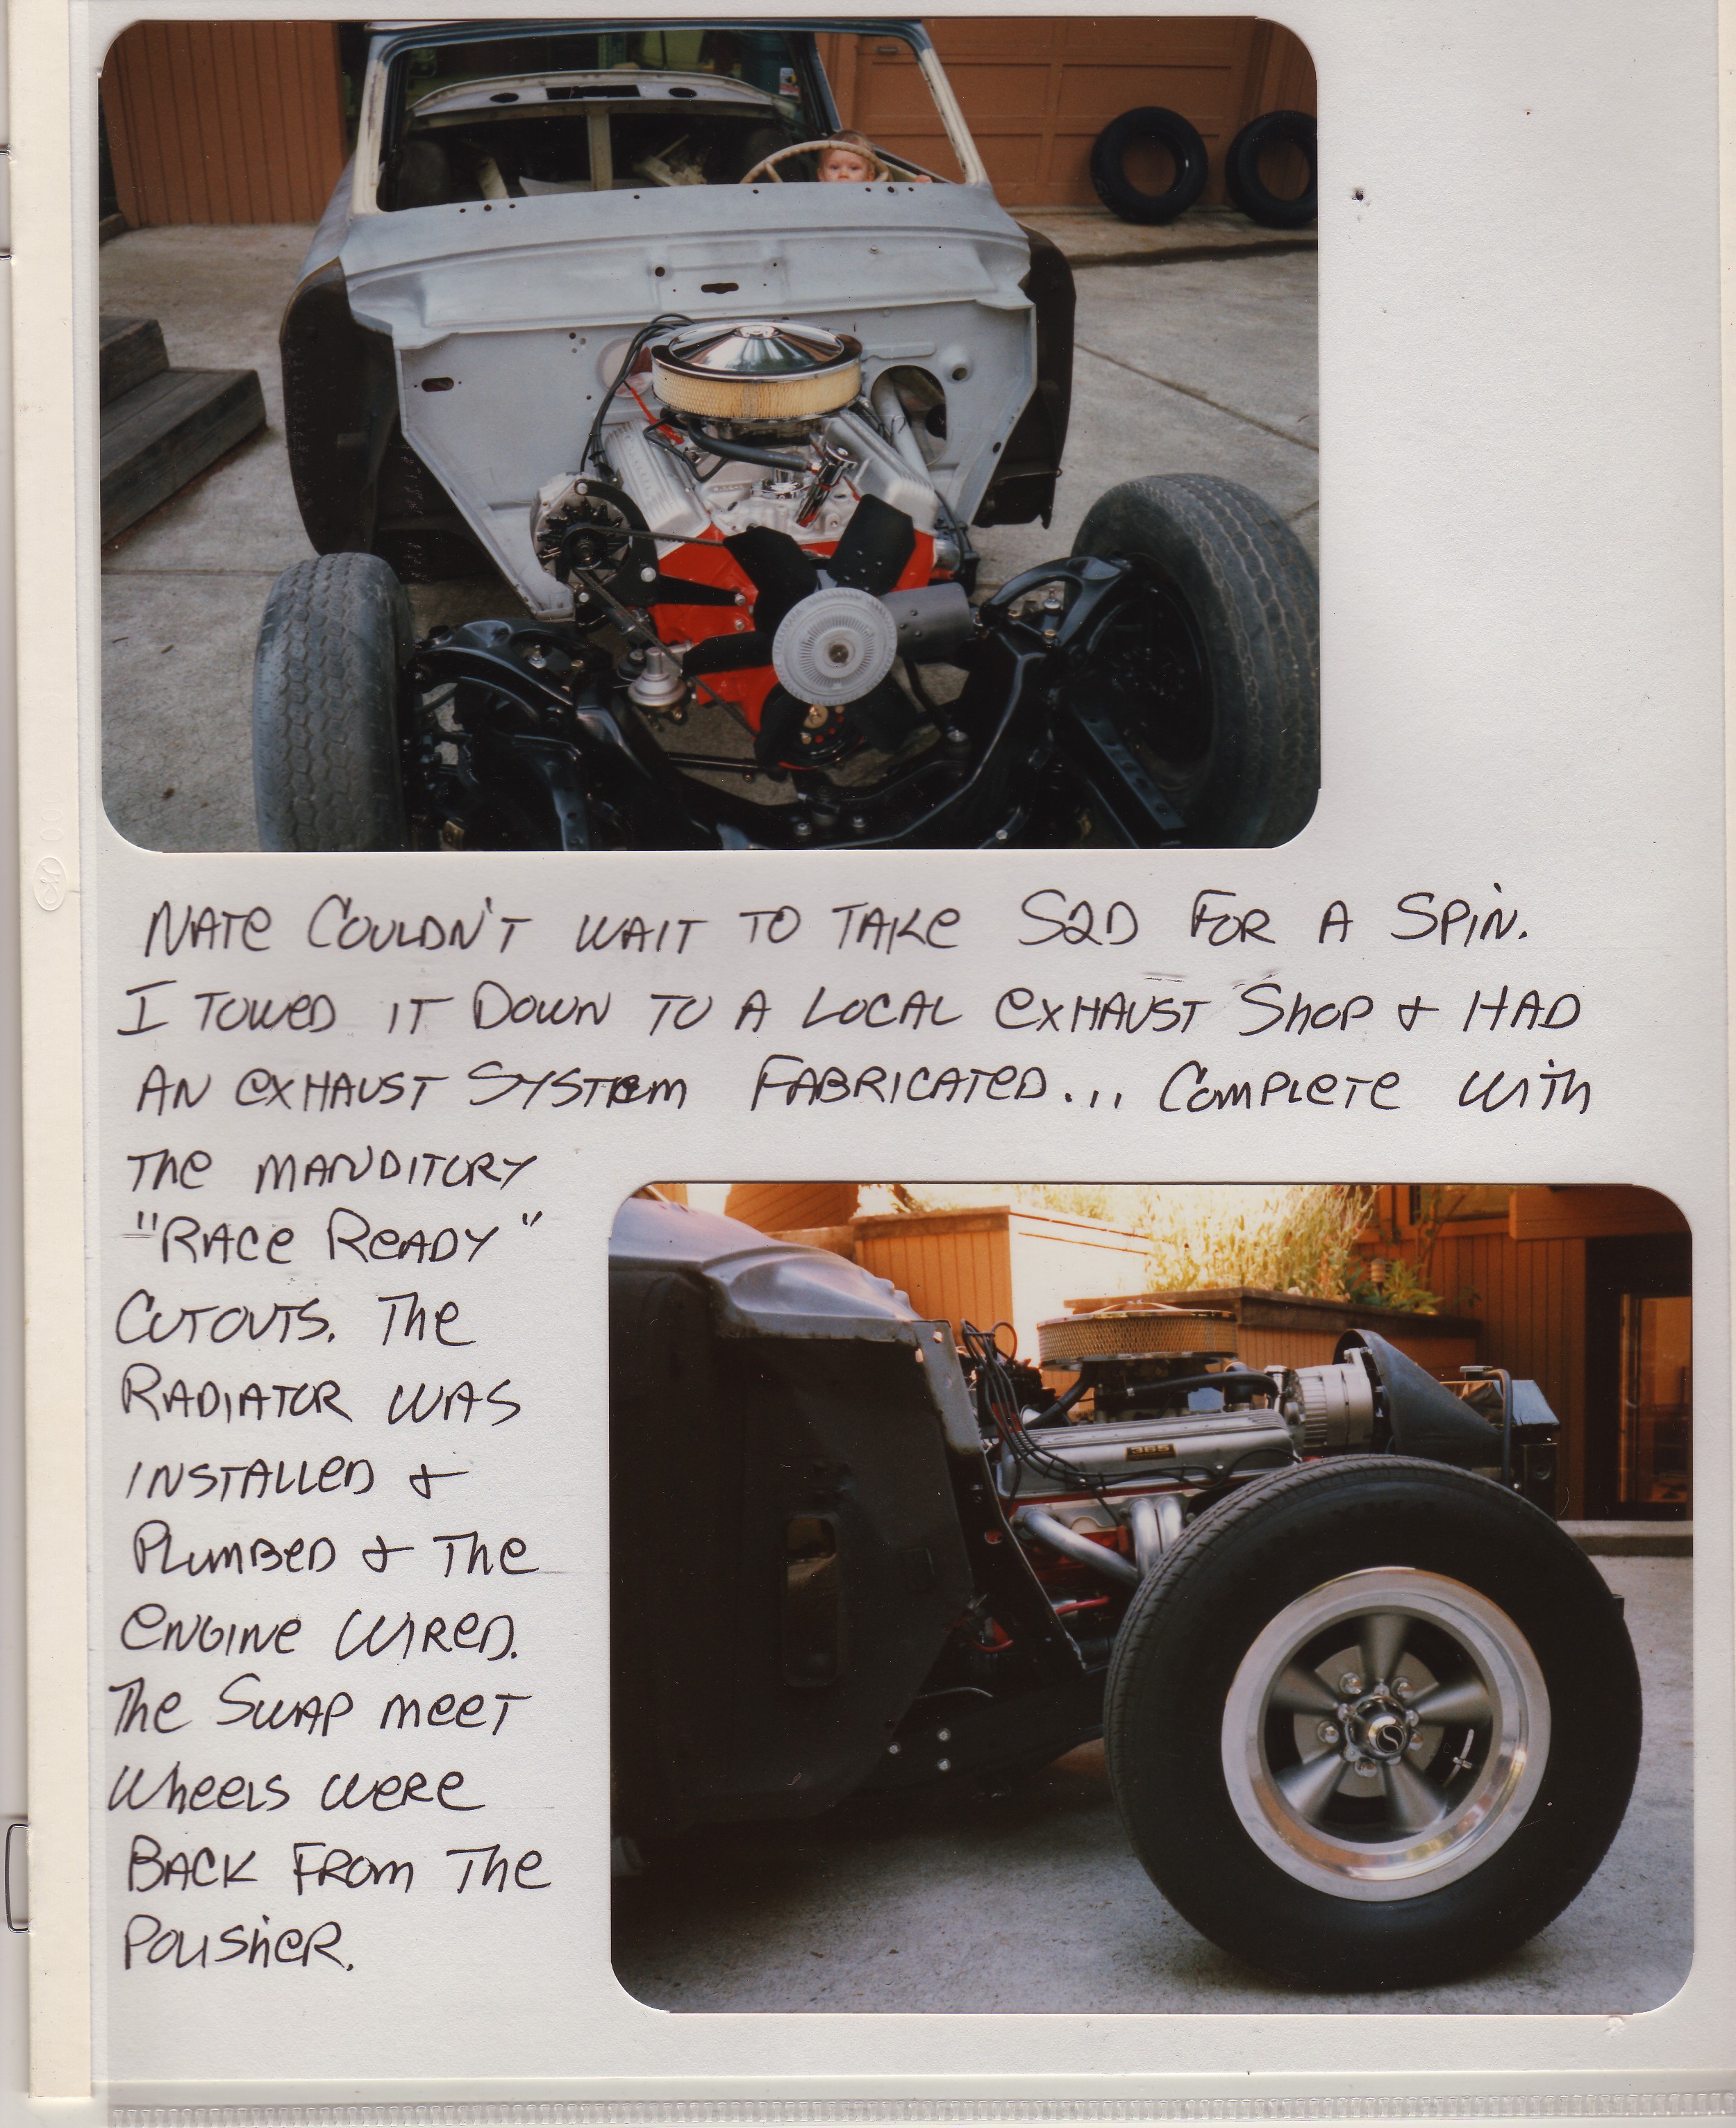 NATE COULDN'T WAIT TO TAKE S2D FOR A SPIN.
I TOWED IT DOWN TO A LOCAL EXHAUST SHOP & HAD
AN EXHAUST SYSTEM FABRICATED... COMPLETE WITH
THE MANDITORY
"RACE READY"
CUTOUTS. THE
RADIATOR WAS
INSTALLED &
PLUMBED & THE
ENGINE WIRED.
THE SWAP MEET
WHEELS WERE
BACK FROM THE
POLISHER.
365
S